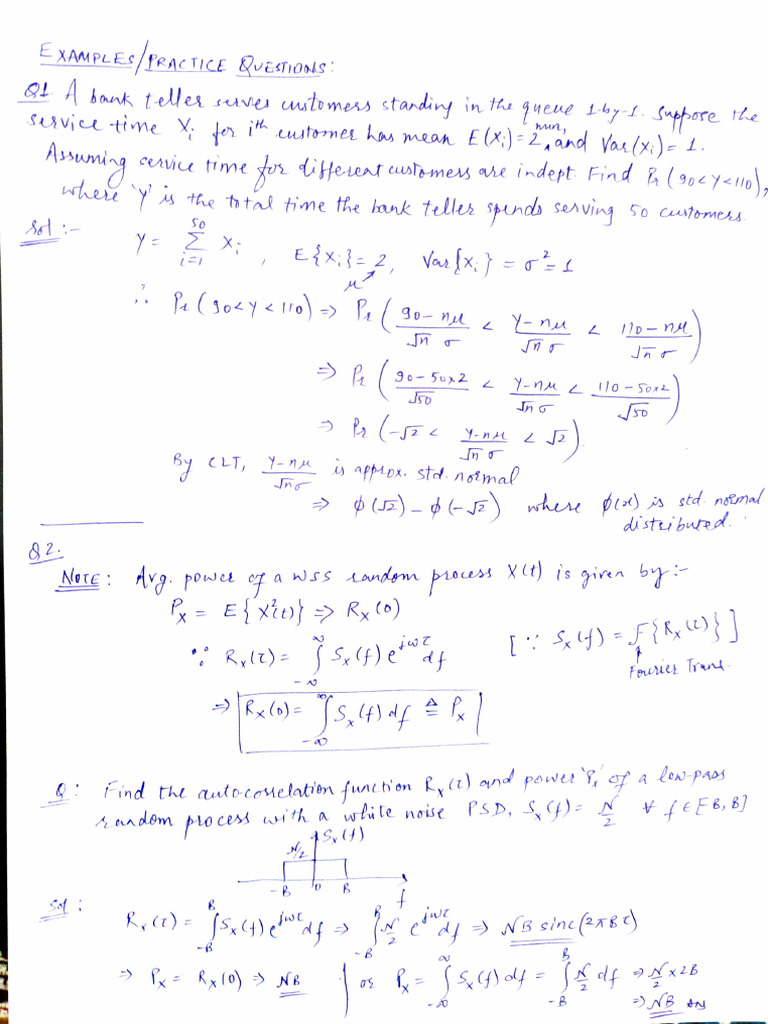 EXAMPLES/PRACTICE QUESTIONS:
Q1. A bank teller serves customers standing in the queue 1-by-1. Suppose the
service time Xᵢ for iᵗʰ customer has mean E(Xᵢ) = 2 min, and Var(Xᵢ) = 1.
Assuming service time for different customers are indept. Find Pr(90<Y<110),
where 'Y' is the total time the bank teller spends serving 50 customers.
Sol :- Y = ∑_{i=1}^{50} Xᵢ , E{Xᵢ} = 2, Var{Xᵢ} = σ² = 1
μ
∴ Pr(90<Y<110) ⇒ Pr( (90-nμ)/(√n σ) < (Y-nμ)/(√n σ) < (110-nμ)/(√n σ) )
⇒ Pr( (90-50×2)/√50 < (Y-nμ)/(√n σ) < (110-50×2)/√50 )
⇒ Pr( -√2 < (Y-nμ)/(√n σ) < √2 ).
By CLT, (Y-nμ)/(√n σ) is approx. std. normal
⇒ ϕ(√2) - ϕ(-√2) where ϕ(x) is std. normal
distributed.
Q2.
NOTE: Avg. power of a WSS random process X(t) is given by:-
Pₓ = E{X²(t)} ⇒ Rₓ(0)
∵ Rₓ(τ) = ∫_{-∞}^{∞} Sₓ(f) e^{jωτ} df [∵ Sₓ(f) = F{Rₓ(τ)}]
Fourier Trans.
⇒ Rₓ(0) = ∫_{-∞}^{∞} Sₓ(f) df ≜ Pₓ
Q: Find the autocorrelation function Rₓ(τ) and power 'Pₓ' of a low-pass
random process with a white noise PSD, Sₓ(f) = N/2 ∀ f∈[-B, B]
N/2 Sₓ(f)
-B 0 B f
Sol : Rₓ(τ) = ∫_{-B}^{B} Sₓ(f) e^{jωτ} df ⇒ ∫_{-B}^{B} N/2 e^{jωτ} df ⇒ NB sinc(2πBτ)
⇒ Pₓ = Rₓ(0) ⇒ NB | or Pₓ = ∫_{-∞}^{∞} Sₓ(f) df = ∫_{-B}^{B} N/2 df ⇒ N/2 × 2B
⇒ NB ans